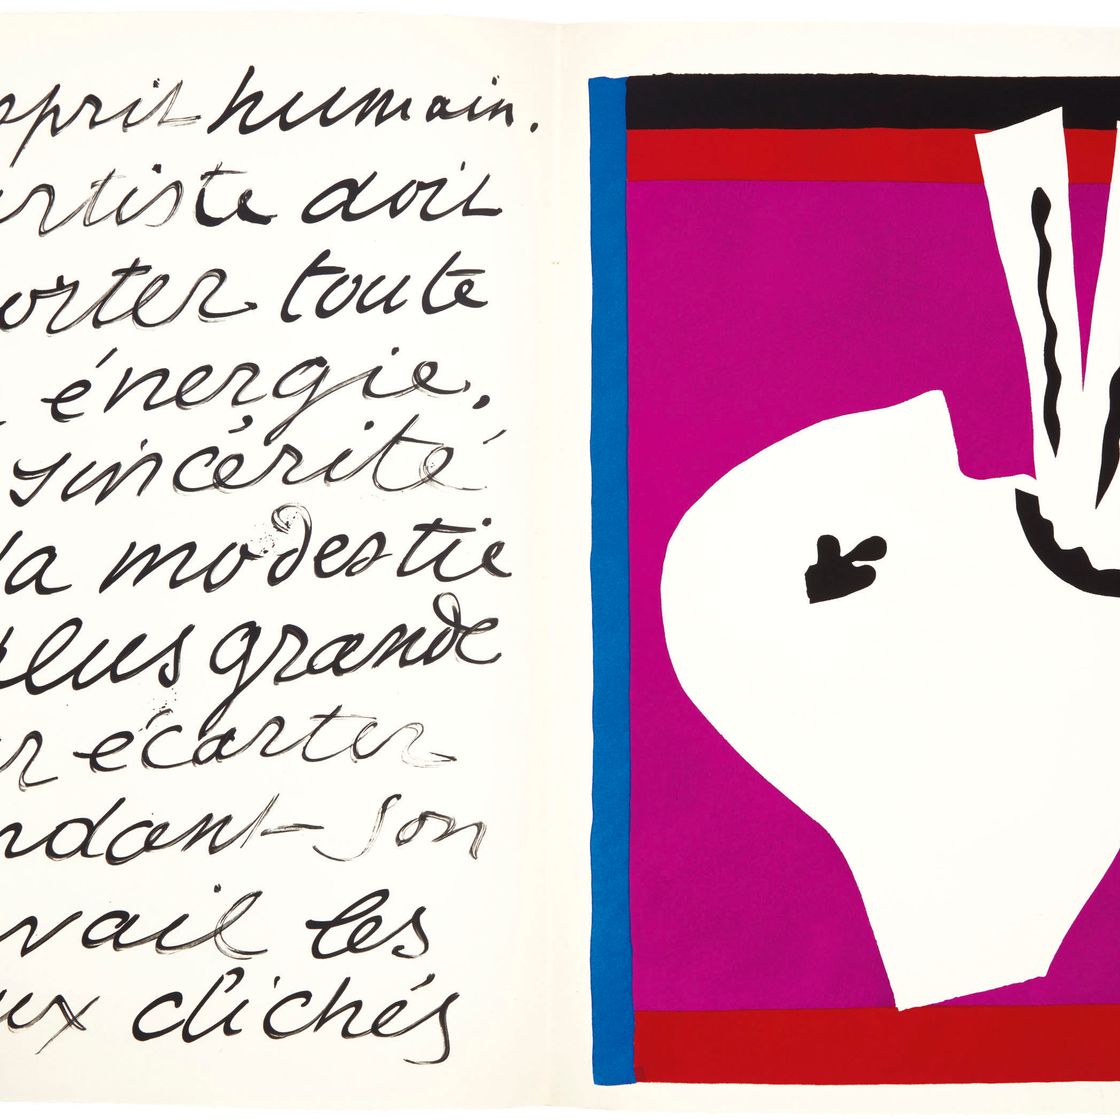 sprit humain.
artiste doit
orter toute
énergie,
sincérité
la modestie
plus grande
ur écarter
ndant son
avail les
ux clichés